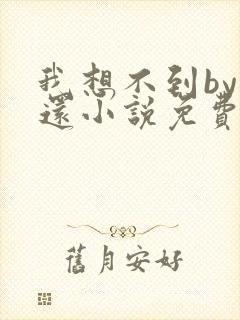 我想不到by
還小說免費
舊月安好